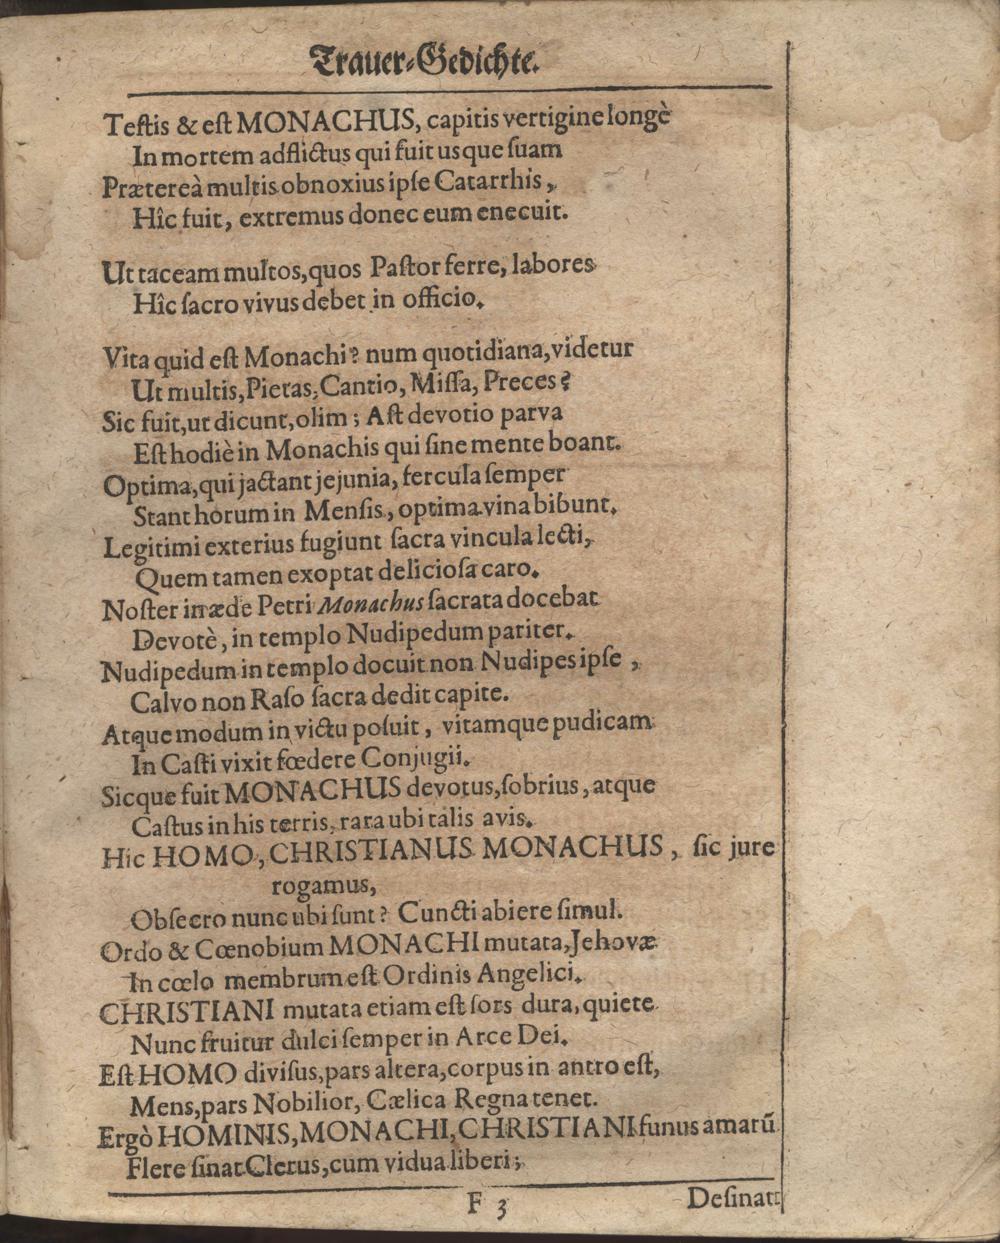 Trauer-Gedichte.
Teſtis & eſt MONACHUS, capitis vertigine longè
In mortem adflictus qui fuit usque ſuam
Prætereà multis obnoxius ipſe Catarrhis,
Hîc fuit, extremus donec eum enecuit.
Ut taceam multos, quos Paſtor ferre, labores
Hîc ſacro vivus debet in officio.
Vita quid eſt Monachi? num quotidiana, videtur
Ut multis, Pietas, Cantio, Miſſa, Preces?
Sic fuit, ut dicunt, olim; Aſt devotio parva
Eſt hodiè in Monachis qui ſine mente boant.
Optima, qui jactant jejunia, fercula ſemper
Stant horum in Menſis, optima vina bibunt.
Legitimi exterius fugiunt ſacra vincula lecti,
Quem tamen exoptat delicioſa caro.
Noſter in æde Petri Monachus ſacrata docebat
Devotè, in templo Nudipedum pariter.
Nudipedum in templo docuit non Nudipes ipſe,
Calvo non Raſo ſacra dedit capite.
Atque modum in victu poſuit, vitamque pudicam
In Caſti vixit fœdere Conjugii.
Sicque fuit MONACHUS devotus, ſobrius, atque
Caſtus in his terris, rara ubi talis avis.
Hic HOMO, CHRISTIANUS MONACHUS, ſic jure
rogamus,
Obſecro nunc ubi ſunt? Cuncti abiere ſimul.
Ordo & Cœnobium MONACHI mutata, Jehovæ
In cœlo membrum eſt Ordinis Angelici.
CHRISTIANI mutata etiam eſt ſors dura, quiete
Nunc fruitur dulci ſemper in Arce Dei.
Eſt HOMO diviſus, pars altera, corpus in antro eſt,
Mens, pars Nobilior, Cælica Regna tenet.
Ergò HOMINIS, MONACHI, CHRISTIANI funus amarũ
Flere ſinat Clerus, cum vidua liberi;
F 3 Deſinat